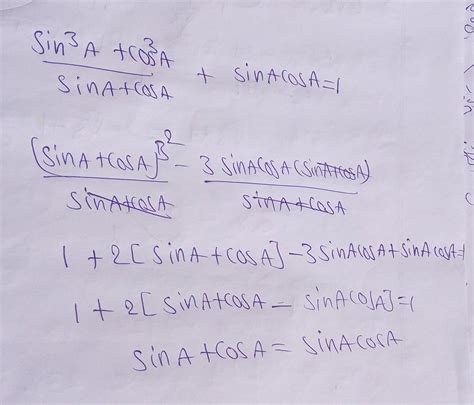 Sin³A + Cos³A / SinA + CosA + SinACosA = 1
(SinA + CosA)³ ² / SinA + CosA - 3 SinACosA (SinA + CosA) / SinA + CosA
1 + 2[SinA + CosA] - 3SinACosA + SinACosA = 1
1 + 2[SinA + CosA - SinACosA] = 1
SinA + CosA = SinACosA